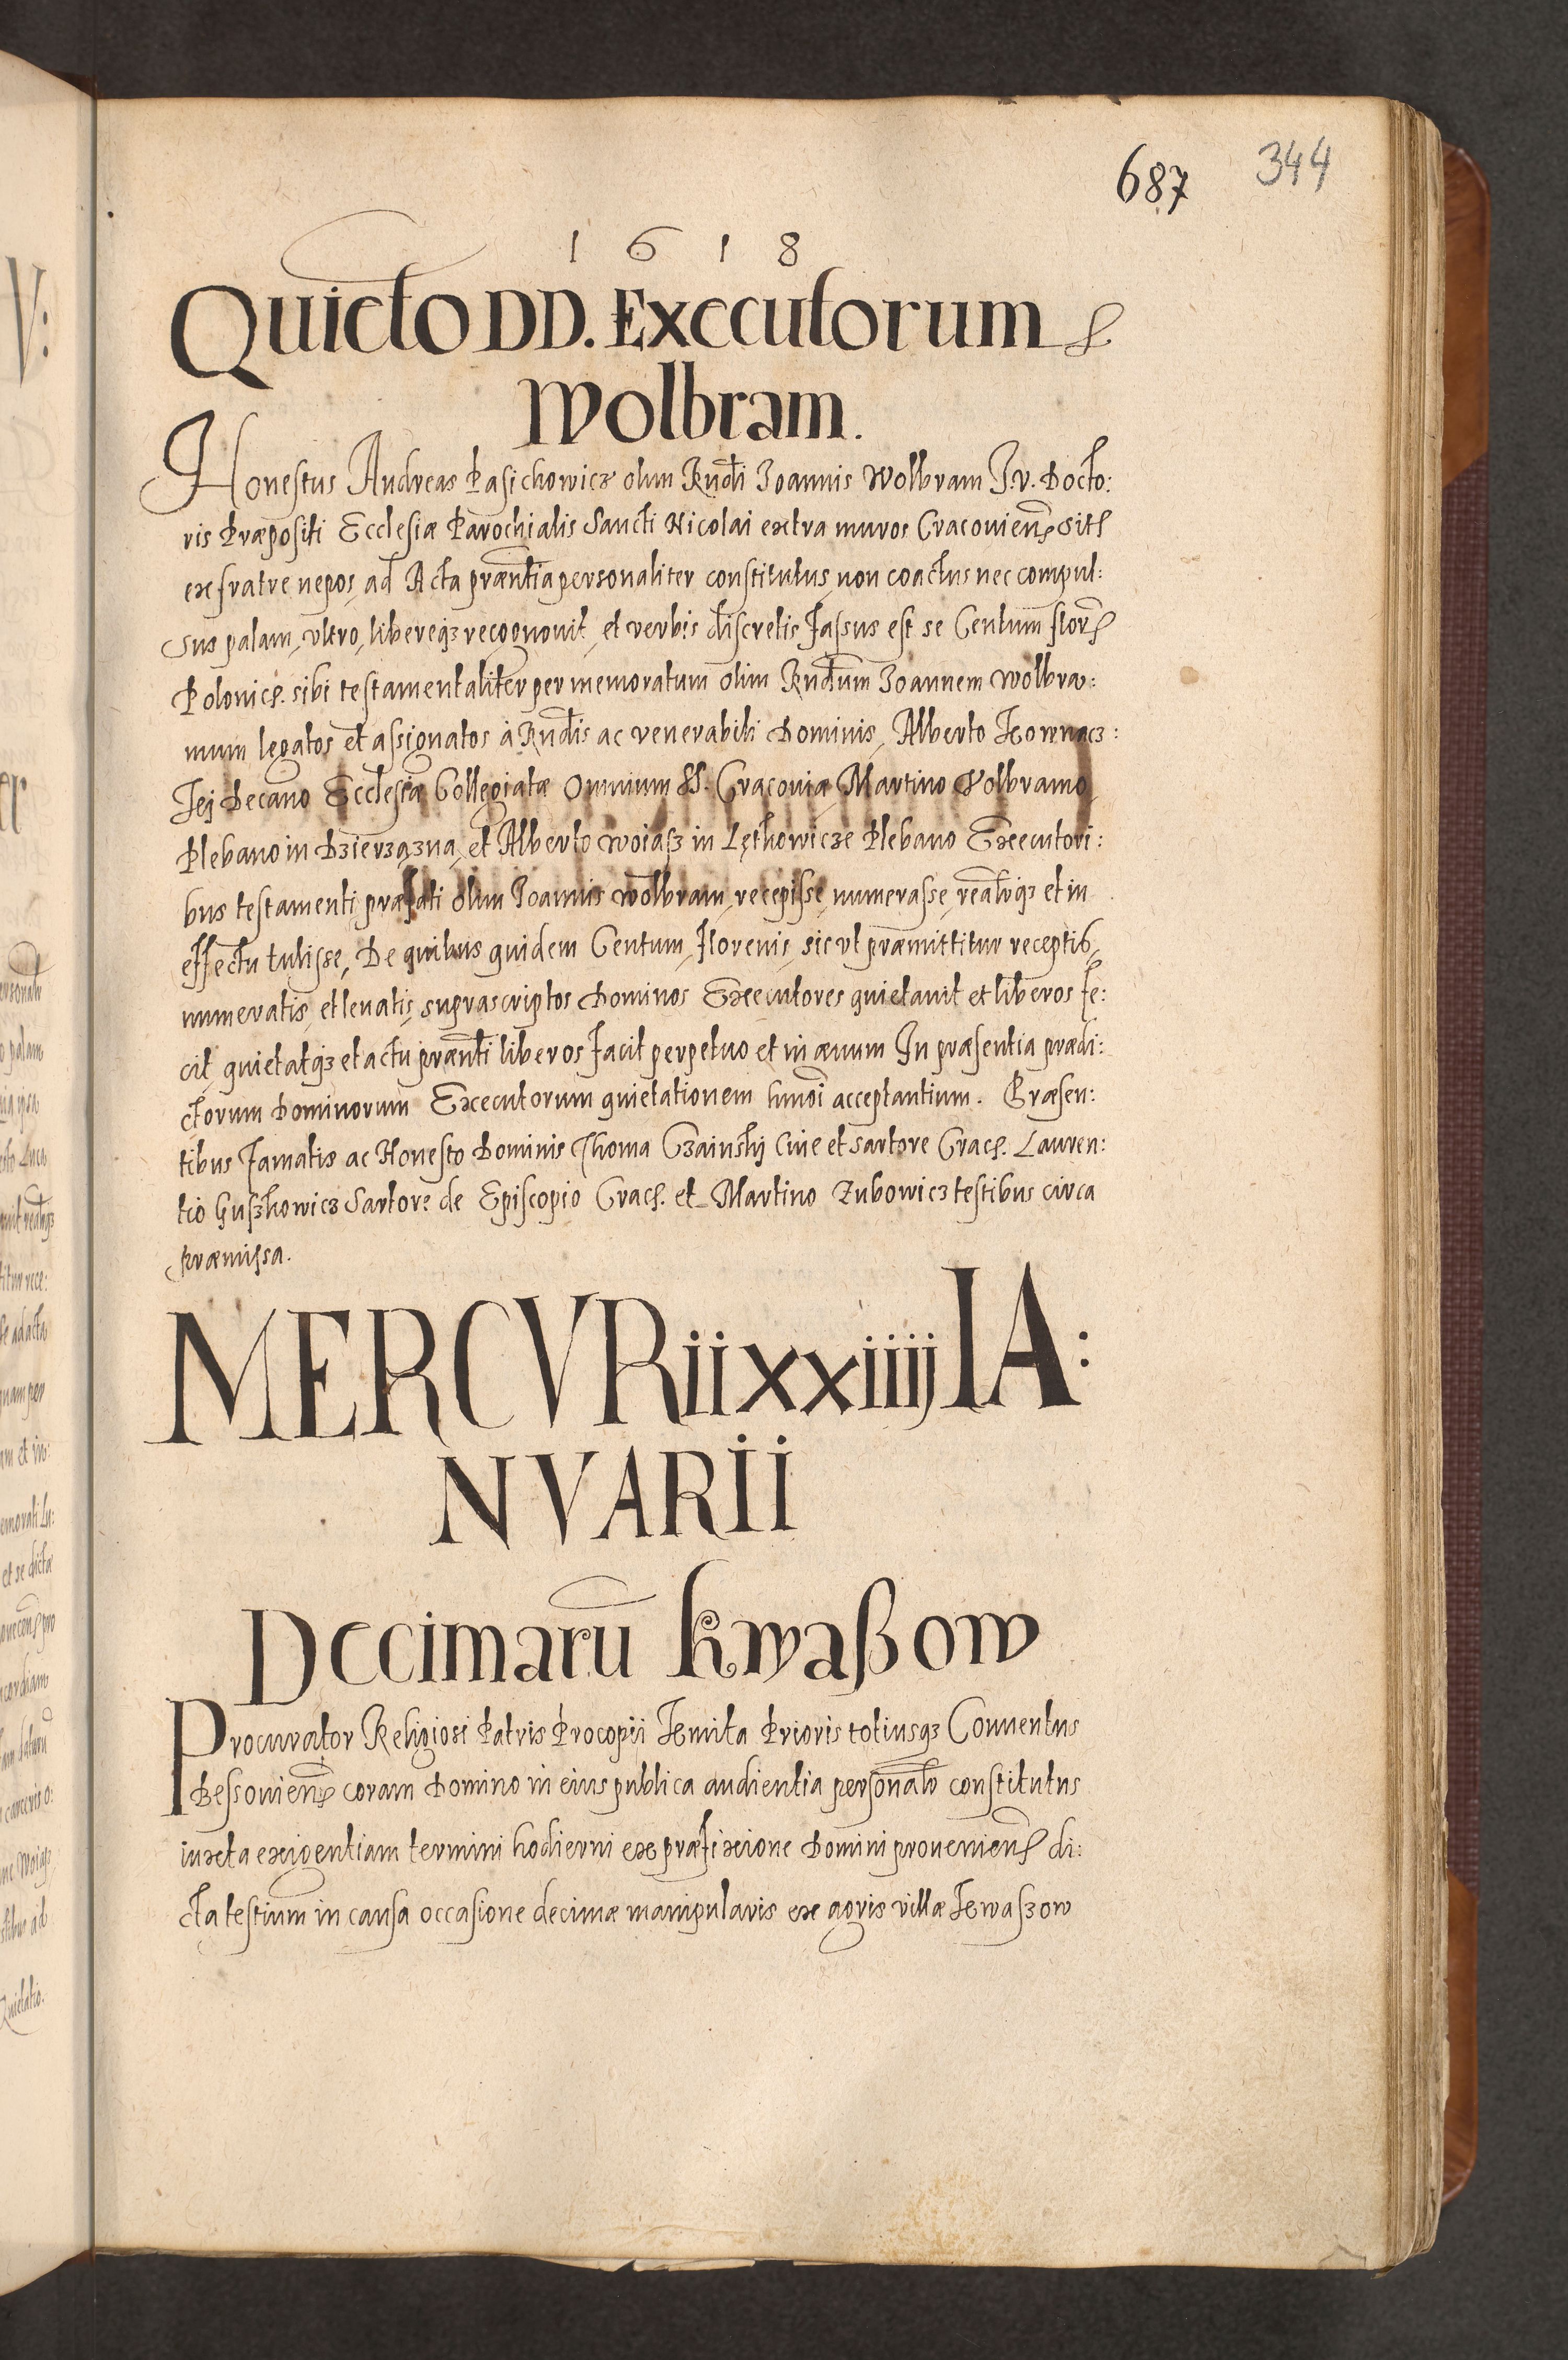 687 344
1618
Quieto DD. Executorum
Wolbram.
Honestus Andreas Pasichowicz olim Rndi Joannis Wolbram J.V. Docto:
ris Præpositi Ecclesiæ Parochialis Sancti Nicolai extra muros Cracovien sit
ex fratre nepos, ad Acta præntia personaliter constitutus, non coactus nec compul:
sus palam, ultro, libereqz recognovit, et verbis discretis fassus est se Centum flor
Polonic. sibi testamentaliter per memoratum olim Rndum Joannem Wolbra:
mum legatos et assignatos à Rndis ac venerabili Dominis, Alberto
Decano Ecclesiæ Collegiatæ Omnium SS. Cracoviæ, Martino Wolbramo
Plebano in Dzierzązna, et Alberto Woiasz in Lęthowicze Plebano Executori:
bus testamenti præfati olim Joannis Wolbram, recepisse, numerasse, realrqz et in
effectu tulisse, De quibus quidem Centum, florenis, sic ut præmittitur receptis,
numeratis, et levatis, suprascriptos Dominos Executores quietavit et liberos fe:
cit, quietatqz et actu prænti liberos facit perpetuo et in ævum In præsentia prædi:
ctorum Dominorum Executorum quietationem hmoi acceptantium. Præsen:
tibus famatis ac Honesto Dominis Thoma Czainskij Cive et sartore Crac. Lauren:
tio Guszkowicz Sartore de Episcopio Crac. et Martino Zubowicz testibus circa
præmissa.
MERCVRii xxiiij IA:
NVARII
Decimarū Kwaßow
Procurator Religiosi Patris Procopii Kmita Prioris totiusqz Conventus
Bessovien coram Domino in eius publica audientia personalr constitutus
iuxta exigentiam termini hodierni ex præfixione Domini provenien di:
cta testium in causa occasione decimæ manipularis ex agris villæ Kwaszow